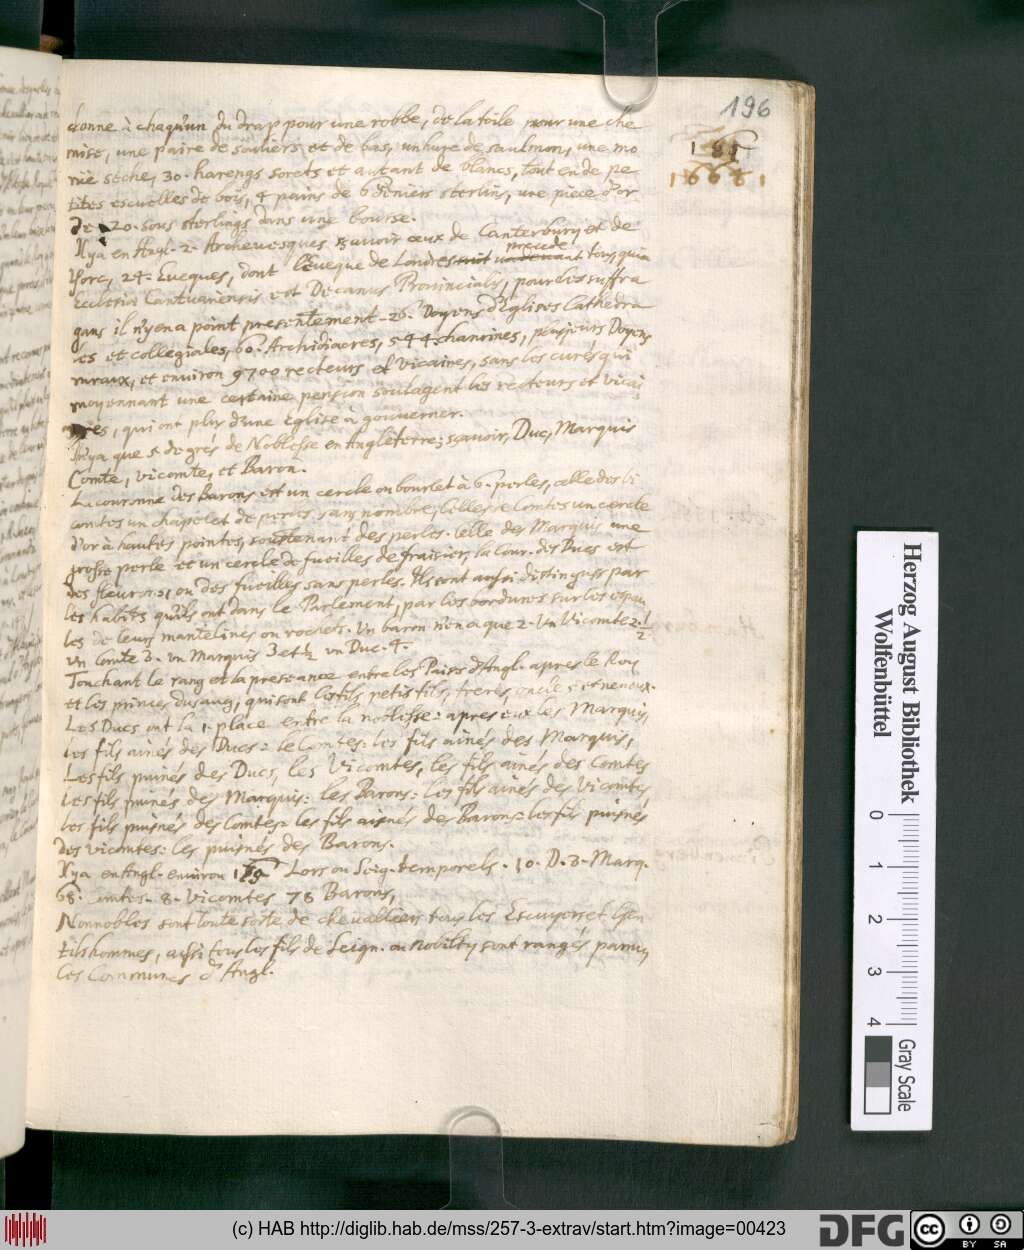 196
181
16681
donne à chaqu'un du drap pour une robbe, de la toile pour une che
mise, une paire de souliers, et de bas, un hure de saulmon, une mo
rüe seche, 30. harengs sorets et autant de blancs, tout en de pe
tites escuelles de bois, 4 pains de 6 deniers sterlins, une piece d'or
de 20. sous sterlings dans une bourse.
Il y a en Angl. 2. Archevesques sçavoir ceux de Canterbury et de
Yorc, 24. Eveques, dont l'Eveque de Londres precede tous quia
Ecclesiæ Cantuariensis est Decanus Provincialis, pour les suffra
gans il n'y en a point presentement. 26. Doyens d'Eglises Cathedra
les et collegiales, 60. Archidiacres, 544. chanoines, plusieurs Doyens
ruraux, et environ 9700 recteurs et vicaires, sans les curés qui
moyennant une certaine pension soulagent les recteurs et vicai
res, qui ont plus d'une Eglise à gouverner.
Il n'y a que 5 degrés de Noblesse en Angleterre; sçavoir, Duc, Marquis
Comte, vicomte, et Baron.
La couronne des Barons est un cercle ou bourlet à 6. perles, celle des vi
comtes un chapelet de perles sans nombre, Celles de Comtes un cercle
d'or à hautes pointes, soustenant des perles. Celle des Marquis une
grosse perle et un cercle de fueilles de fraisier, la Cour. des Ducs est
des fleurons, ou des fueilles sans perles. Ils sont aussi distingués par
les habits qu'ils ont dans le Parlement, par les bordures sur les espau
les de leurs mantelines ou rochets. Un baron n'en a que 2. Un Vicomte 2. 1/2
un Comte 3. un Marquis 3 et 1/2 un Duc. 4.
Touchant le rang et la preseance entre les Pairs d'Angl. apres le Roy
et les princes du sang, qui sont les fils petis fils, freres, oncles et neveux.
Les Ducs ont la 1. place entre la noblesse: apres eux les Marquis,
les fils ainés des Ducs: le Comtes: les fils ainés des Marquis,
Les fils puinés des Ducs, les Vicomtes, les fils ainés des Comtes
les fils puinés des Marquis: les Barons: les fils ainés des Vicomtes
les fils puisnés des Comtes: les fils aisnés des Barons: les fils puisnés
des vicomtes: les puisnés des Barons.
Il y a en Angl. environ Lors ou Seig. temporels. 10. D. 3. Marq.
68. Comtes. 8. Vicomtes 78 Barons,
Nonnobles sont toute sorte de chevalliers, tous les Escuyers et Gen
tilshommes, aussi tous les fils de Seign. ou nobility sont rangés parmy
les Communes d'Angl.
Herzog August Bibliothek
Wolfenbüttel
0 1 2 3 4
Gray Scale
(c) HAB http://diglib.hab.de/mss/257-3-extrav/start.htm?image=00423
DFG
cc BY SA